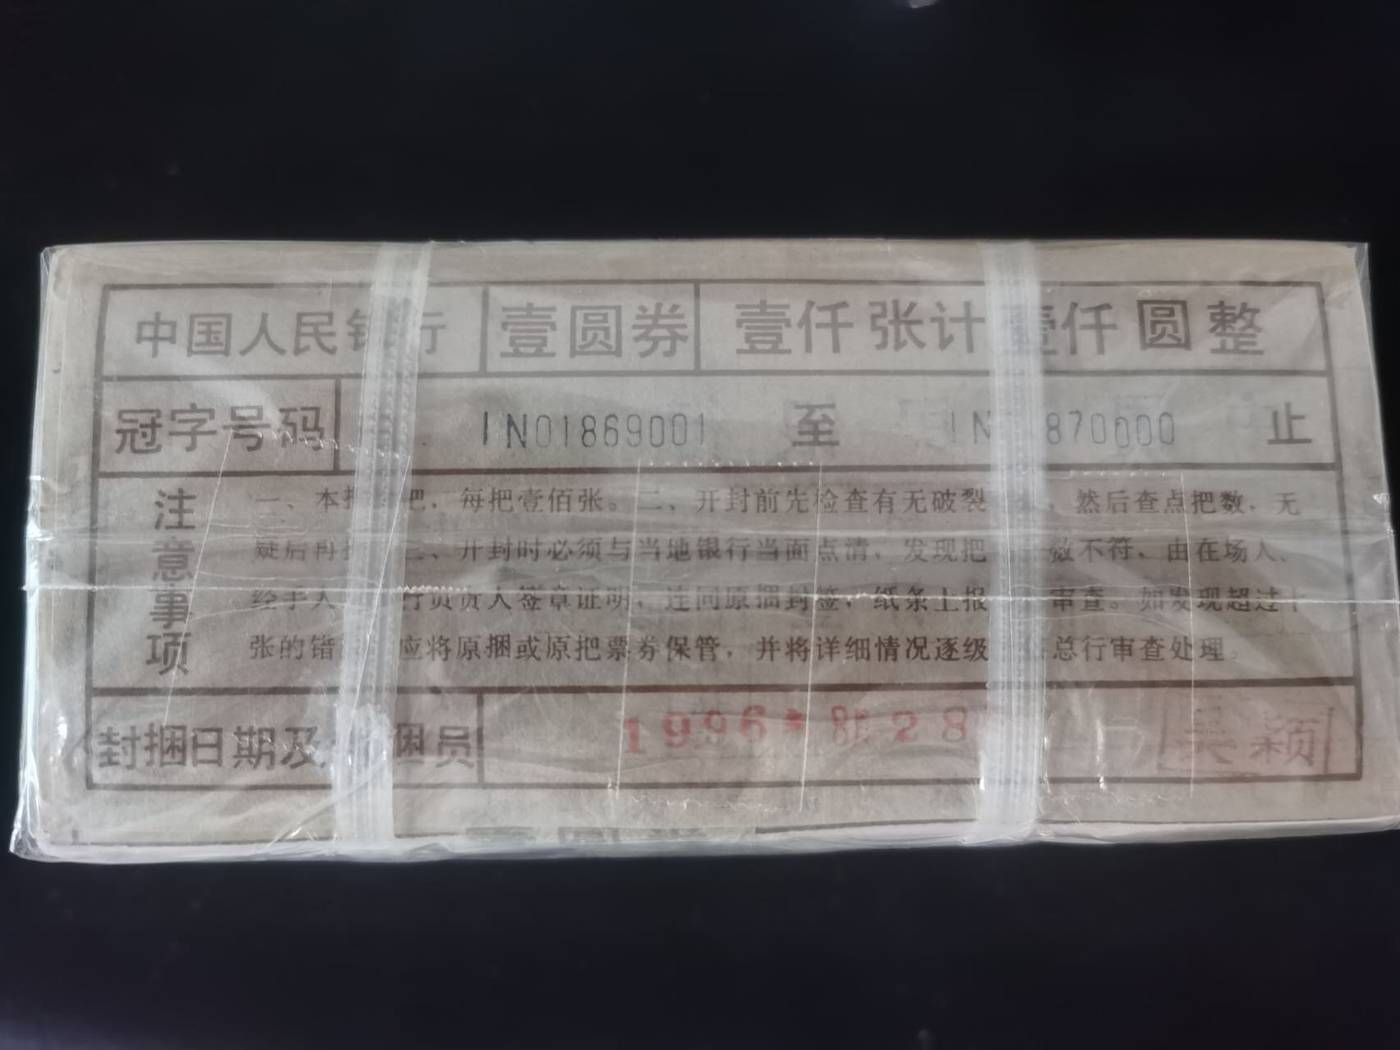 中国人民银行 壹圆券 壹仟张计壹仟圆整
冠字号码 IN01869001 至 IN 870000 止
注意事项
一、本 把，每把壹佰张。二、开封前先检查有无破裂 ，然后查点把数，无
疑后再 三、开封时必须与当地银行当面点清，发现把 数不符，由在场人、
经手人 行负责人签章证明，连同原捆封签，纸条上报 审查。如发现超过十
张的错 应将原捆或原把票券保管，并将详细情况逐级 总行审查处理。
封捆日期及 捆员 1996 28 吴颖